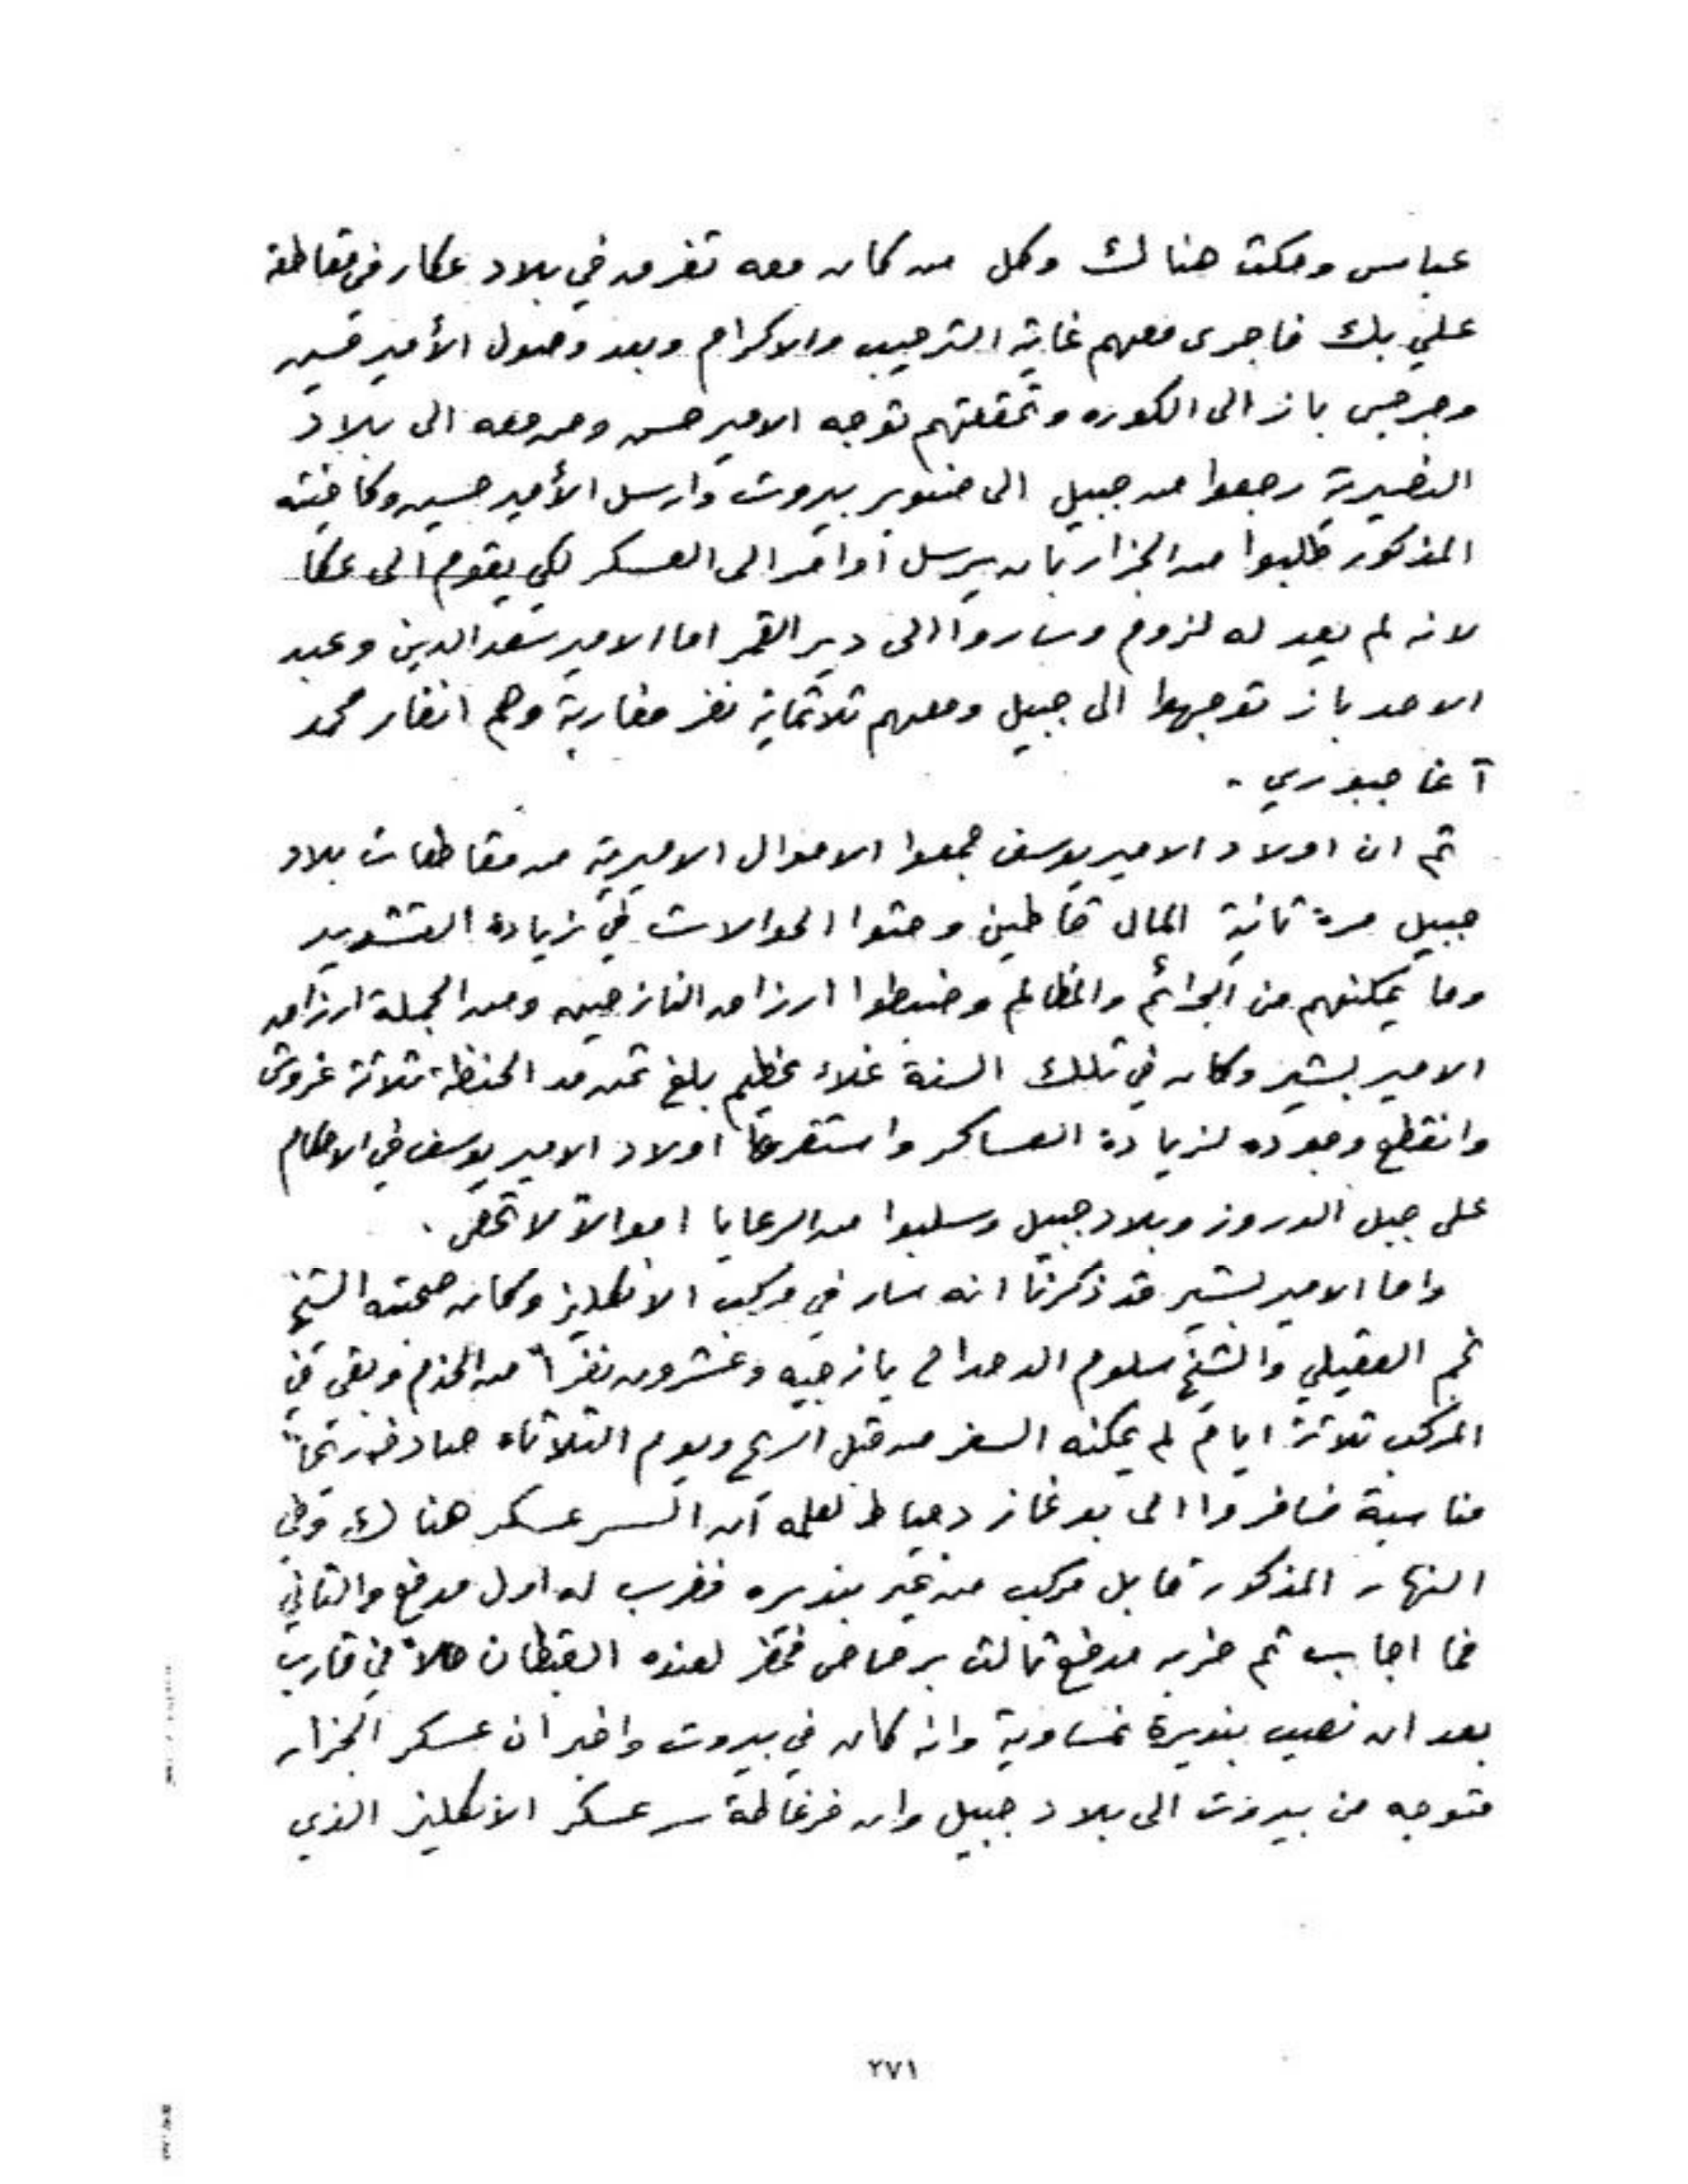 عباس ومكث هنالك وكل من كان معه تفرق في بلاد عكار في مقاطعة
علي بك فاجرى معهم غاية الترحيب والاكرام وبعد وصول الأمير حسين
وجرجس باز الى الكوره وتحققتهم توجه الامير حسن ومن معه الى بلاد
النصيرية رجعوا من جبيل الى صنوبر بيروت وارسل الأمير حسين وكاخيته
المذكور طلبوا من الجزار بان يرسل أوامر الى العسكر لكي يقوم الى عكا
لانه لم يعد له لزوم وساروا الى دير القمر اما الامير سعد الدين وعبد
الاحد باز توجهوا الى جبيل ومعهم تلاتماية نفر مغاربة وهم انفار محمد
آغا جبوري -
تم ان اولاد الامير يوسف جمعوا الاموال الاميرية من مقاطعات بلاد
جبيل مرة تانية المال قاطين وحتوا الحوالات في زيادة التشديد
وما يمكنهم من الجرائم والمظالم وضبطوا ارزاق النازحين ومن الجملة ارزاق
الامير بشير وكان في تلك السنة غلاء عظيم بلغ تمن مد الحنطة تلاتة غروش
وانقطع وجوده لزيادة العساكر واستقرها اولاد الامير يوسف في الاحكام
على جبل الدروز وبلاد جبيل وسلبوا من الرعايا اموالاً لا تحصى .
واما الامير بشير قد ذكرنا انه سار في مركب الانكليز وكان صحبته الشيخ
نجم العقيلي والشيخ سلوم الدحداح يازجيه وعشرون نفراً من الخدم وبقي في
المركب تلاتة ايام لم يمكنه السفر من قبل الريح ويوم التلاتاء صادف ريحاً
مناسبة فسافروا الى بوغاز دمياط لعلمه ان السر عسكر هناك وفي
النهار المذكور قابل مركب من غير بنديره فضرب له اول مدفع والتاني
فما اجاب تم ضربه مدفع تالت برصاص فحضر لعنده القبطان حالاً في قارب
بعد ان نصب بنديرة نمساوية وانه كان في بيروت واخبر ان عسكر الجزار
متوجه من بيروت الى بلاد جبيل وان فرغاطة سر عسكر الانكليز الذي
٢٧١